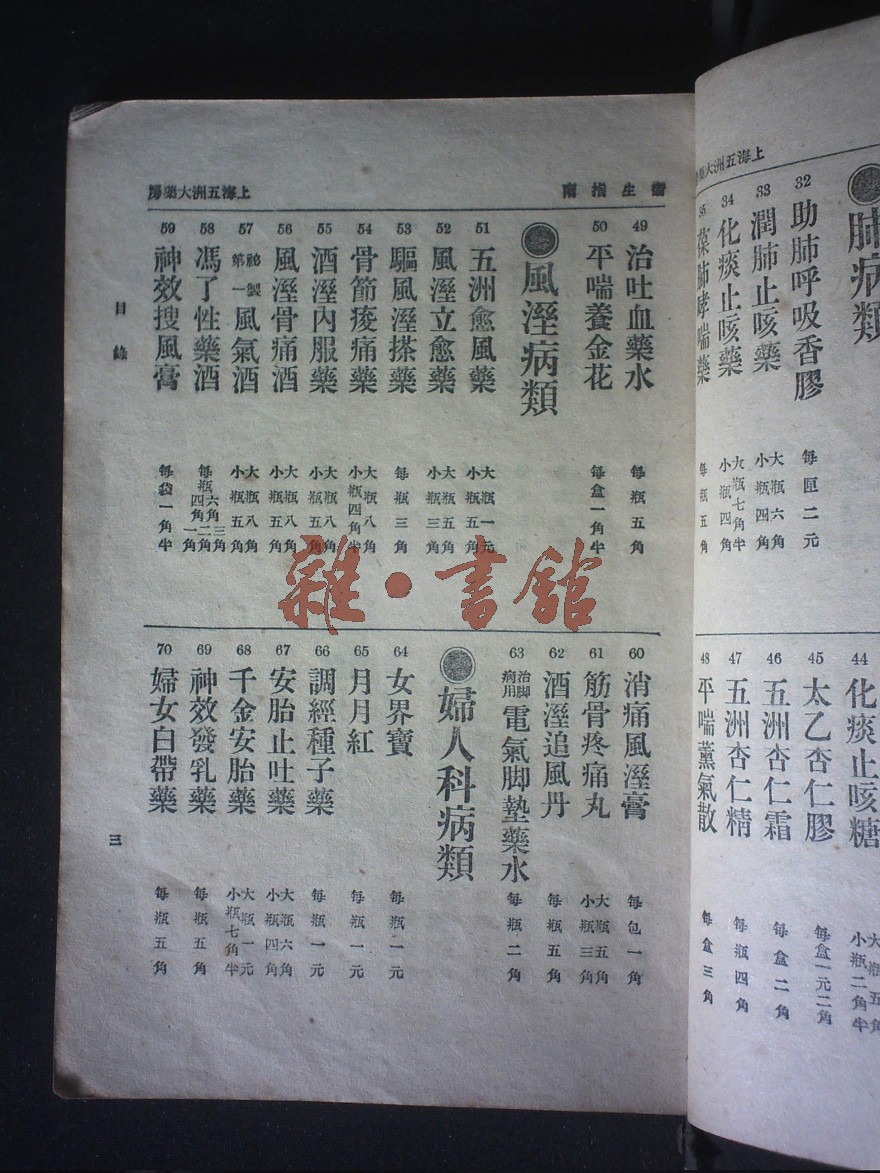 肺病類
32 助肺呼吸香膠 每匣二元
33 潤肺止咳藥 大瓶六角 小瓶四角
34 化痰止咳藥 大瓶七角半 小瓶四角
葆肺哮喘藥 每瓶五角
44 化痰止咳糖 大瓶五角 小瓶二角半
45 太乙杏仁膠 每盒一元二角
46 五洲杏仁霜 每盒二角
47 五洲杏仁精 每瓶四角
48 平喘薰氣散 每盒三角
上海五洲大藥房
衞生指南
49 治吐血藥水 每瓶五角
50 平喘養金花 每盒一角半
風溼病類
51 五洲愈風藥 大瓶一元 小瓶五角
52 風溼立愈藥 大瓶五角 小瓶三角
53 驅風溼搽藥 每瓶三角
54 骨節痠痛藥 大瓶八角 小瓶四角半
55 酒溼內服藥 大瓶八角 小瓶五角
56 風溼骨痛酒 大瓶八角 小瓶五角
57 祕製第一風氣酒 大瓶八角 小瓶五角
58 馮了性藥酒 每瓶六角三角 四角二角 一角
59 神效搜風膏 每袋一角半
60 消痛風溼膏 每包一角
61 筋骨疼痛丸 大瓶五角 小瓶三角
62 酒溼追風丹 每瓶五角
63 治脚病用電氣脚墊藥水 每瓶二角
婦人科病類
64 女界寶 每瓶一元
65 月月紅 每瓶一元
66 調經種子藥 每瓶一元
67 安胎止吐藥 大瓶六角 小瓶四角
68 千金安胎藥 大瓶一元 小瓶七角半
69 神效發乳藥 每瓶五角
70 婦女白帶藥 每瓶五角
上海五洲大藥房
目錄
三
雜·書館